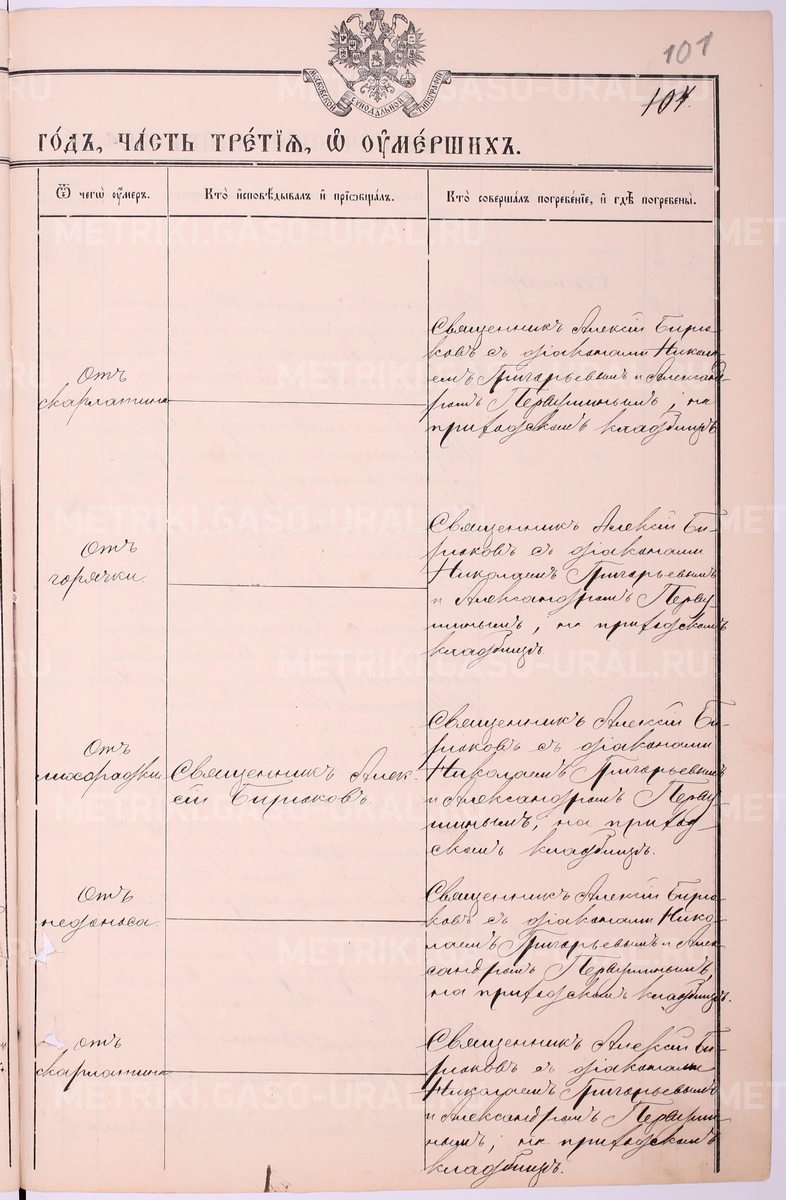 101
101.
МОСКОВСКОЙ СѴНОДАЛЬНОЙ ТИПОГРАФІИ
ГО́ДЪ, ЧА́СТЬ ТРЕ́ТІѦ, Ѽ ОУ҆МЕ́РШИХЪ.
Ѿ чегѡ̀ оу҆́меръ.
Кто̀ и҆сповѣ́дывалъ и҆ прїѡбща́лъ.
Кто̀ соверша́лъ погребе́нїе, и҆ гдѣ̀ погребены̀.
Отъ
скарлатины
Священникъ Алексій Бирю-
ковъ съ діаконами Никола-
емъ Григорьевымъ и Александ-
ромъ Первушинымъ, на
приходскомъ кладбищѣ
Отъ
горячки.
Священникъ Алексій Би-
рюковъ съ діаконами
Николаемъ Григорьевымъ
и Александромъ Перву-
шинымъ, на приходскомъ
кладбищѣ
Отъ
лихорадки
Священникъ Алек-
сій Бирюковъ.
Священникъ Алексій Би-
рюковъ съ діаконами
Николаемъ Григорьевымъ
и Александромъ Перву-
шинымъ, на приход-
скомъ кладбищѣ.
Отъ
недоноса.
Священникъ Алексій Бирю-
ковъ съ діаконами Нико-
лаемъ Григорьевымъ и Алек-
сандромъ Первушинымъ,
на приходскомъ кладбищѣ.
отъ
скарлатины
Священникъ Алексій Би-
рюковъ съ діаконами
Николаемъ Григорьевымъ
и Александромъ Первуши-
нымъ, на приходскомъ
кладбищѣ.
METRIKI.GASO-URAL.RU